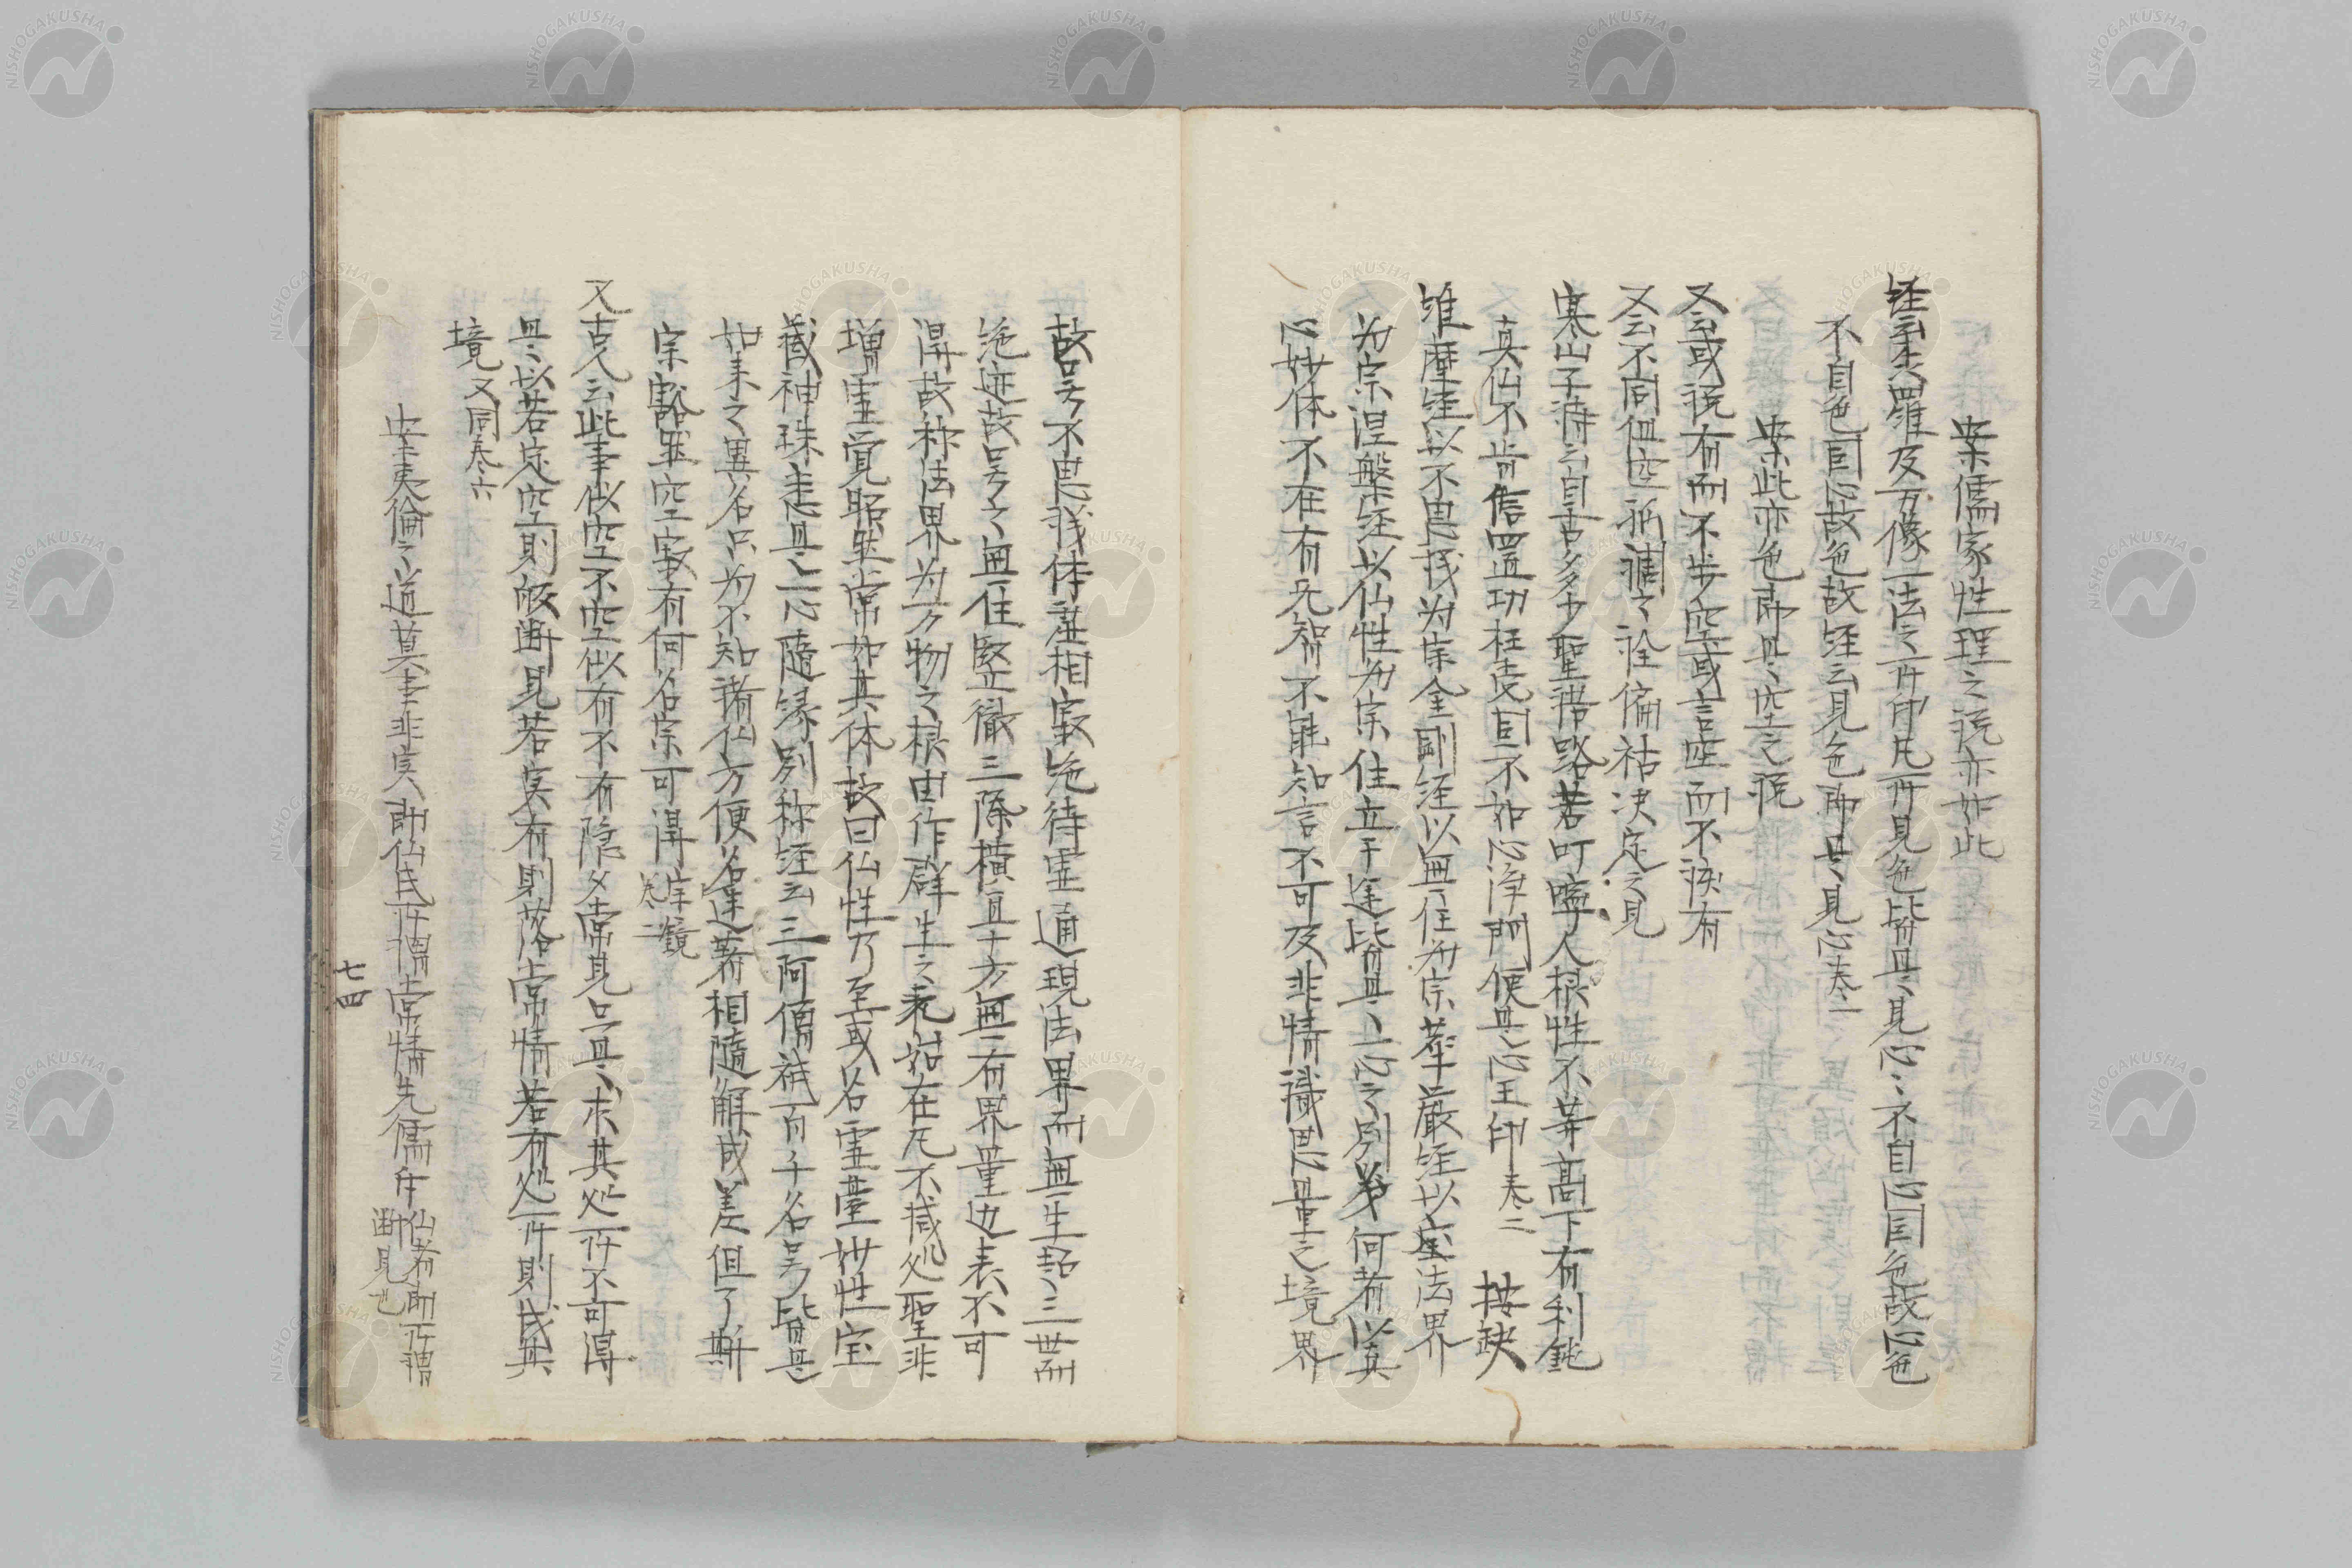 案儒家性理之説亦如此
経云森羅及万像一法之所印凡所見色皆是見心〻不自心因色故心色
不自色因心故色故経云見色即是見心巻二
案此亦色即是空之説
又云或説有而不空或言空而不有
又云不同但空孤調之詮偏枯决定之見
寒山子詩云自古多少聖語路苦叮嚀人根性不等高下有利鈍
真仏不肯信置功枉受困不知心浄明便是心王印巻二　按缺
維摩経以不思議為宗金剛経以無住為宗華厳経以法界
為宗涅槃経以仏性為宗任立千途皆是一心之別義何者以真
心妙体不在有无智不能知言不可及非情識思量之境界
故号不思議体虚相寂絶待霊通現法界而無生超三世而
絶迹故号之無住竪徹三際横亘十方無有界量辺表不可
得故称法界為万物之根由作群生之元始在凡不减処聖非
増霊覚昭然常如其体故曰仏性乃至或名霊臺妙性宝
蔵神珠悉是一心随縁別称経云三阿僧祇百千名号皆是
如来之異名只為不知諸仏方便名迷著相随解成差但了斯
宗豁然空寂有何名字可得宗鏡巻二
又古人云此事似空不空似有不有隠々常見只是求其処所不可得
是以若定空則皈断見若実有則落常情若有処所則成其
境又同巻六
案夷倫之道莫非実即仏氏所謂常情先儒斥仏者即所謂断見也
七四